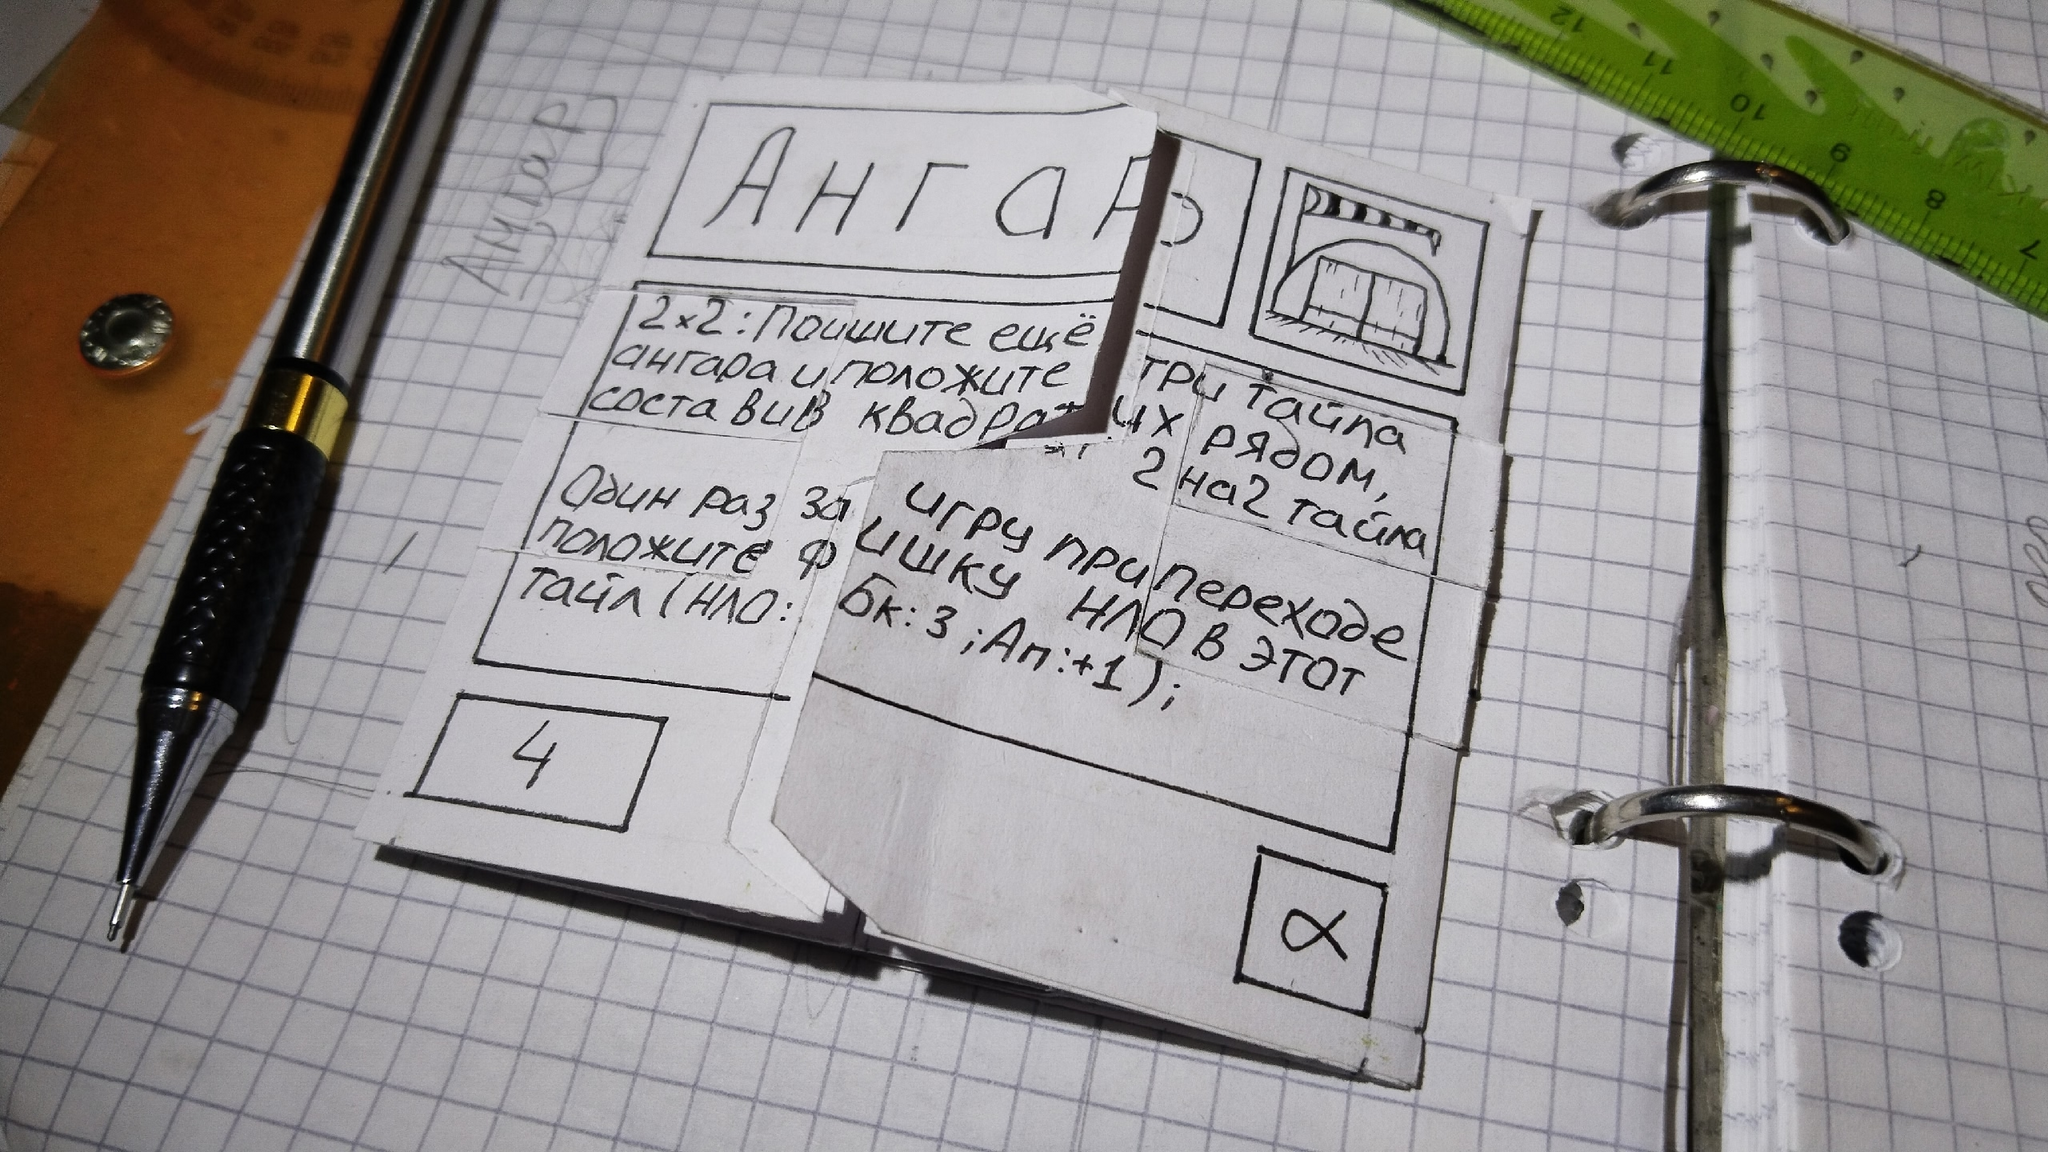 Ангар
2х2: Поишите ещё три тайла
ангара и положите их рядом,
составив квадрат 2 на 2 тайла
Один раз за игру при переходе
положите фишку НЛО в этот
тайл (НЛО: Бк: 3; Ап: +1);
4
α
Ангар
12
11
10
9
8
7